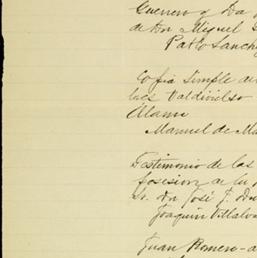 Guerrero y Da
de Don Miguel
Pablo Sanchez
Copia Simple de
lues Valdivielso
Alamo
Manuel de
Testimonio de los
posesion de la
Sr. Dn José J. Dn
Joaquin Villalva
Juan Romero